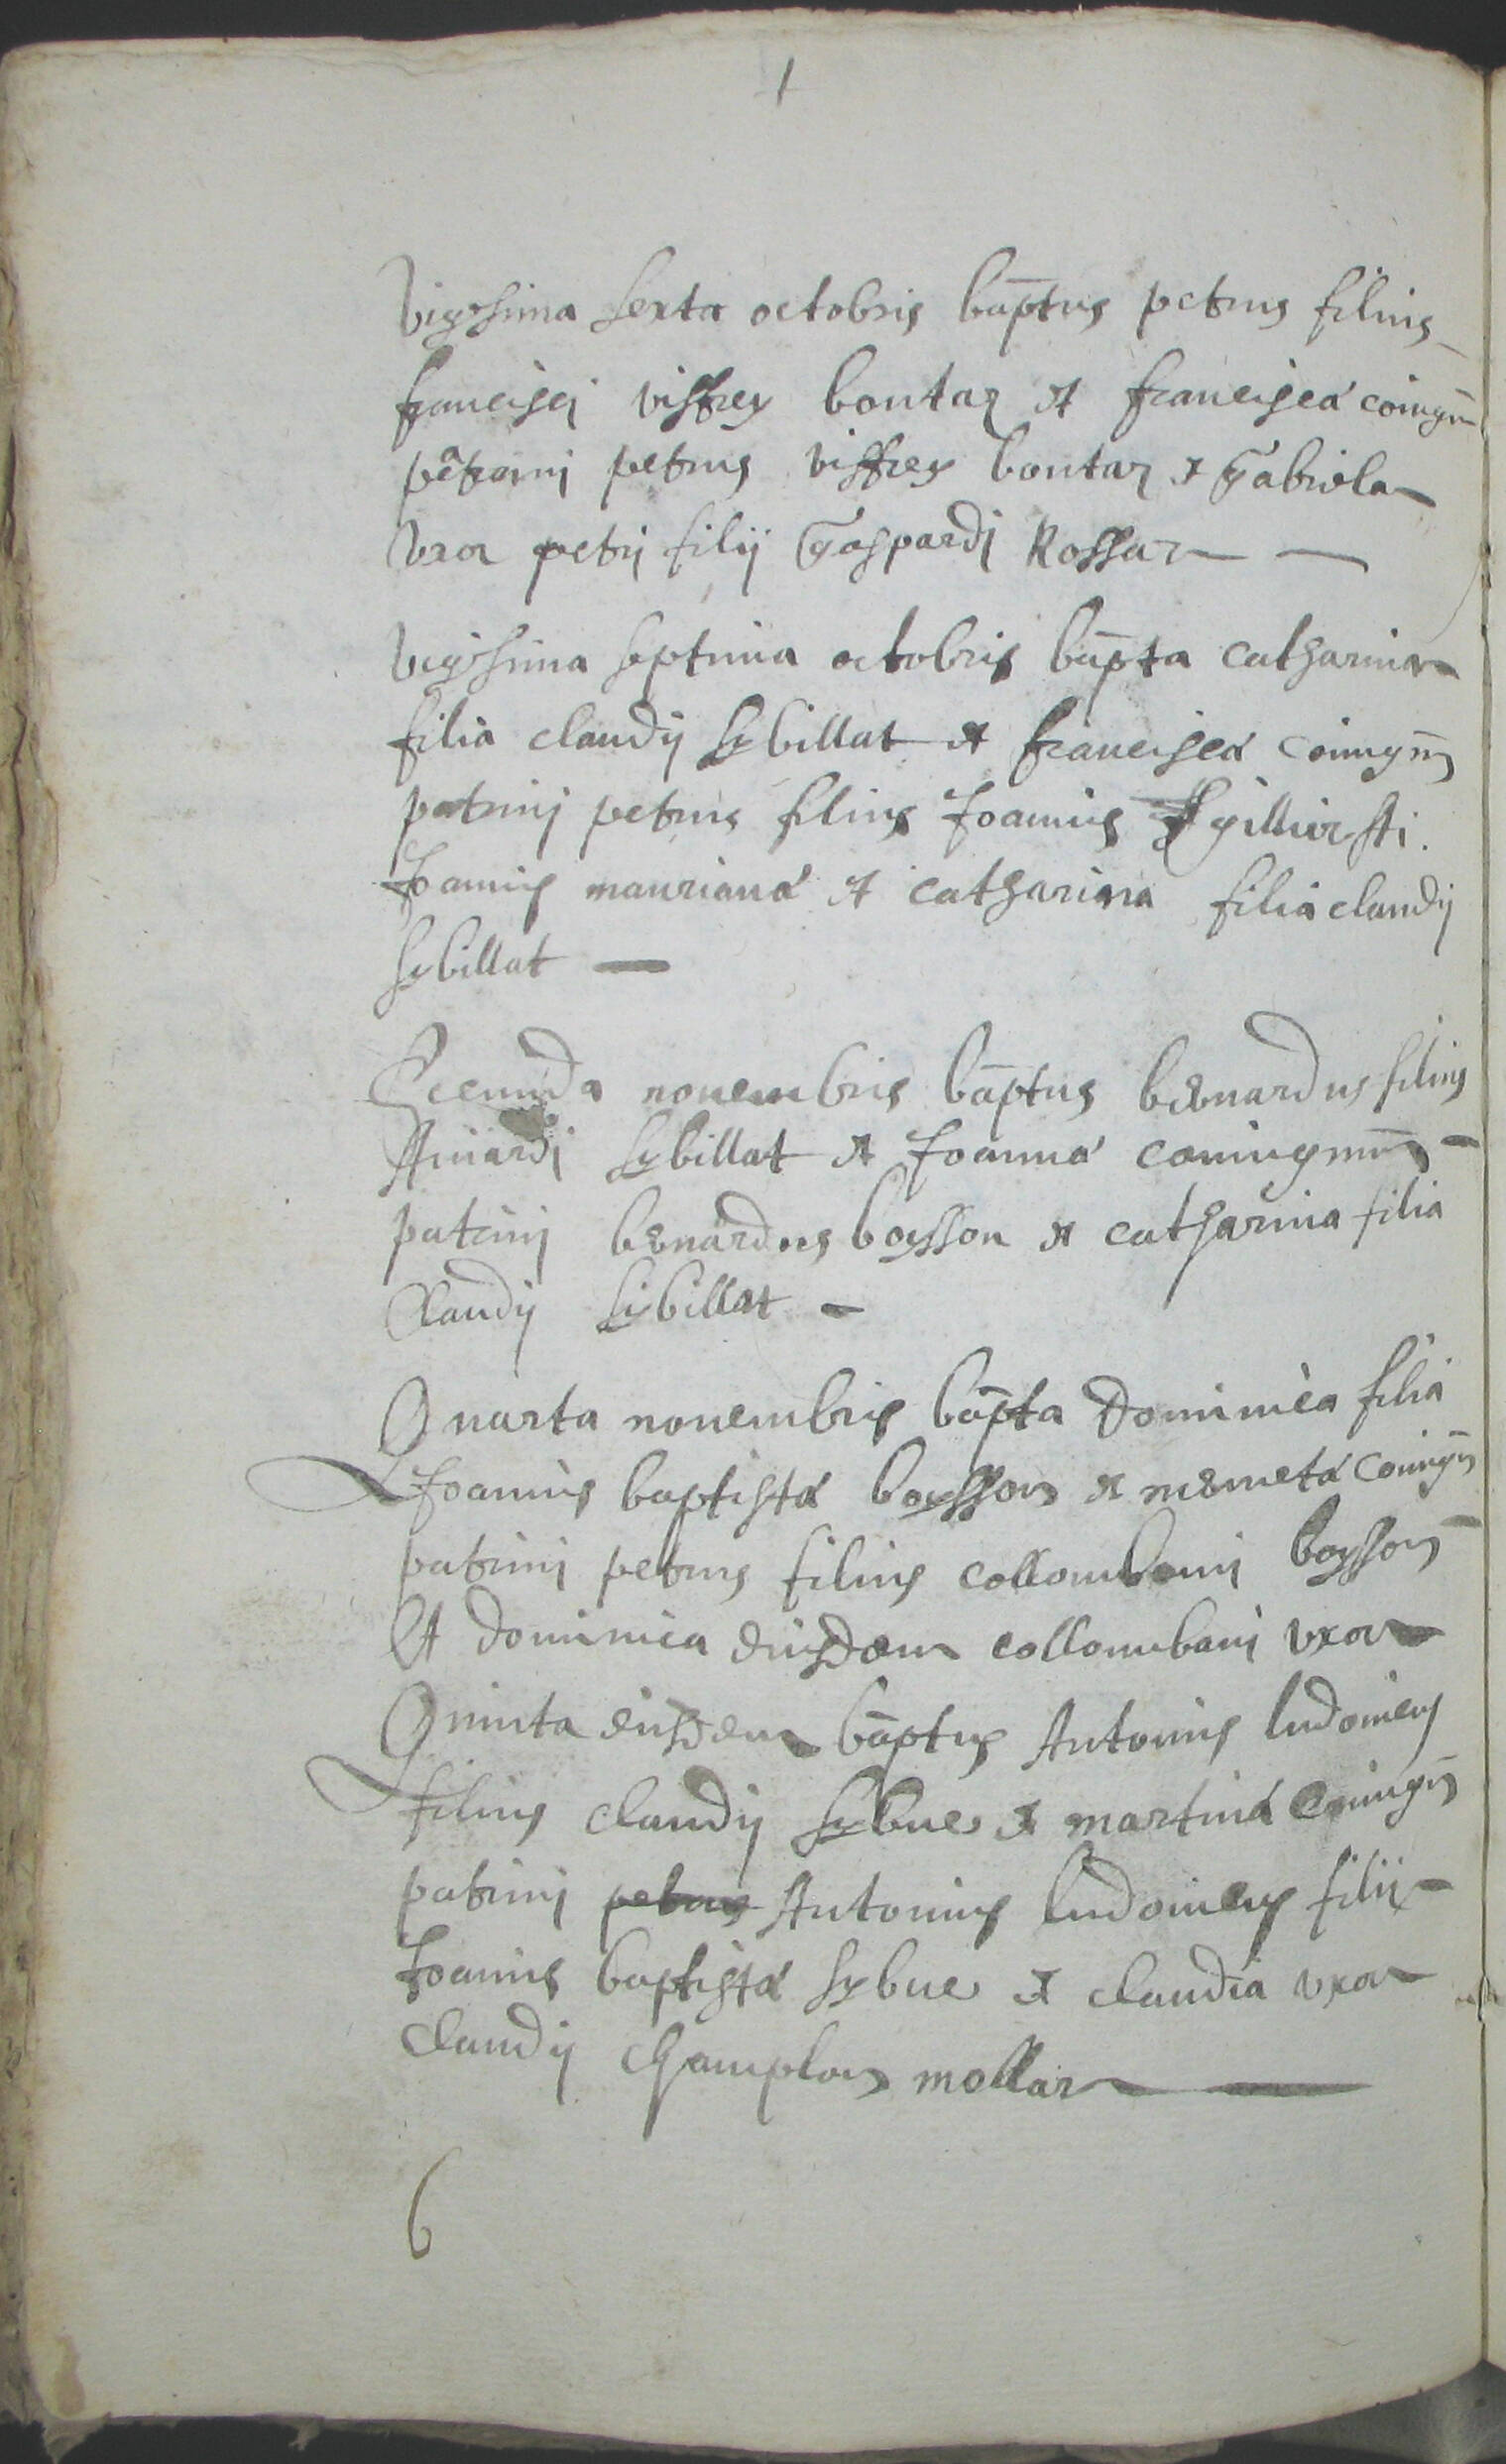 1
vigessima sexta octobris bāptus petrus filius
francisci viffrey bontaz et franciscá coniugū
pêtrini petrus viffrey bontaz et Gabriela
vxor petrj filij Gaspardj Rossaz
vigessima septima octobris bāpta catharina
filia claudij sybillat et franciscá coniugū
patrinj petrus filius Joannis
Joannis maurianá et catharina filia claudij
sybillat
Secunda nouembris bāptus bernardus filius
Aimardj sybillat et Joanná coniugum
patrinj bernardus boysson et catharina filia
Claudij sybillat
Quarta nouembris bāpta dominica filia
Joannis baptistá boysson et mermetá coniugū
patrinj petrus filius collombanj boysson
Et dominica eiusdem collombanj vxor
Quinta eiusdem bāptus Antonius ludouicus
filius claudij sybue et martiná coniugū
patrinj petrus Antonius ludouicus filij
Joannis baptistá sybue et claudia vxor
claudij champlon mollar
6